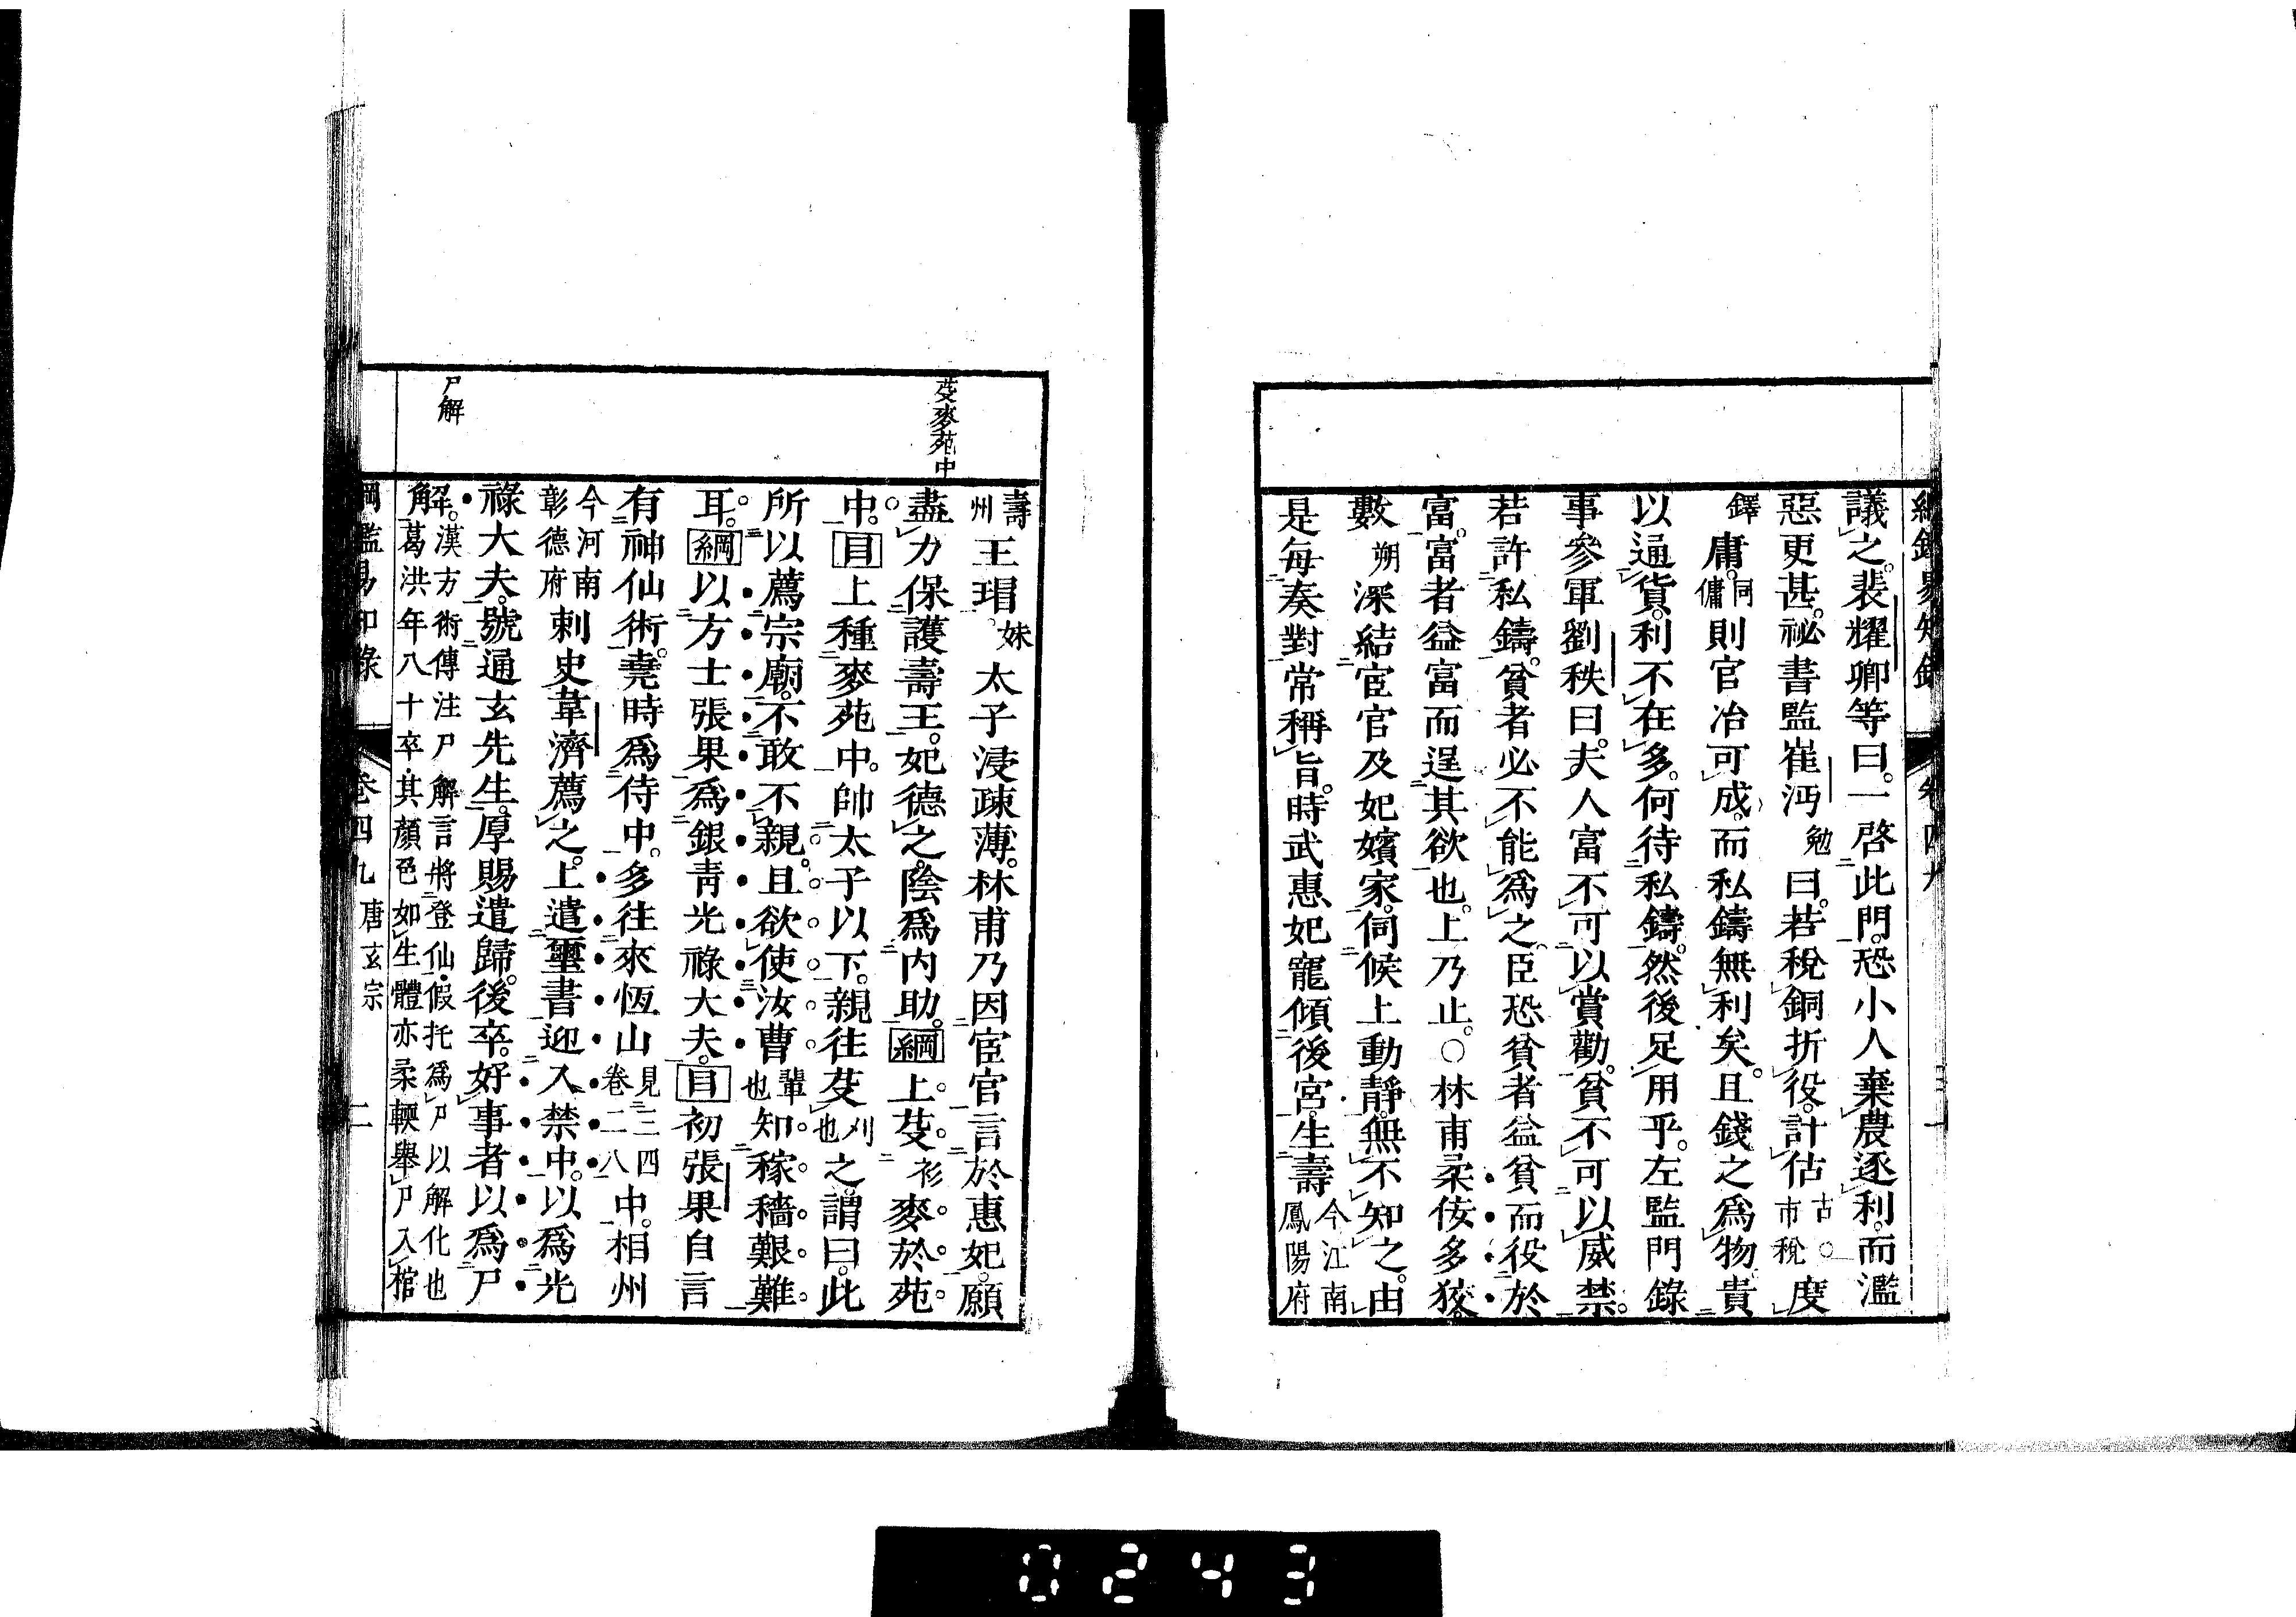 議之。裴耀卿等曰。一啓此門。恐小人棄農逐利。而濫
惡更甚。祕書監崔沔勉曰。若稅銅折役。計估古○市稅度
鐸庸。同傭則官冶可成。而私鑄無利矣。且錢之爲物。貴
以通貨。利不在多。何待私鑄。然後足用乎。左監門錄
事參軍劉秩曰。夫人富不可以賞勸。貧不可以威禁。
若許私鑄。貧者必不能爲之。臣恐貧者益貧而役於
富。富者益富而逞其欲也。上乃止。○林甫柔佞多狡
數朔深結宦官及妃嬪家。伺候上動靜。無不知之。由
是每奏對常稱旨。時武惠妃寵傾後宮。生壽今江南鳳陽府
芟麥苑中
壽州王瑁。妹太子浸疎薄。林甫乃因宦官言於惠妃。願
盡力保護壽王。妃德之。陰爲內助。綱上芟衫麥於苑
中。目上種麥苑中。帥太子以下。親往芟刈也之。謂曰。此
所以薦宗廟。不敢不親。且欲使汝曹輩也知稼穡艱難
耳。綱以方士張果爲銀青光祿大夫。目初張果自言
有神仙術。堯時爲侍中。多往來恆山見三四卷二八中。相州
今河南彰德府刺史韋濟薦之。上遣璽書迎入禁中。以爲光
祿大夫。號通玄先生。厚賜遣歸。後卒。好事者以爲尸
尸解
解。漢方術傳注尸解言將登仙假托爲尸以解化也
葛洪年八十卒其顏色如生體亦柔輭舉尸入棺
綱鑑易知錄 卷四九 唐玄宗 二
0243